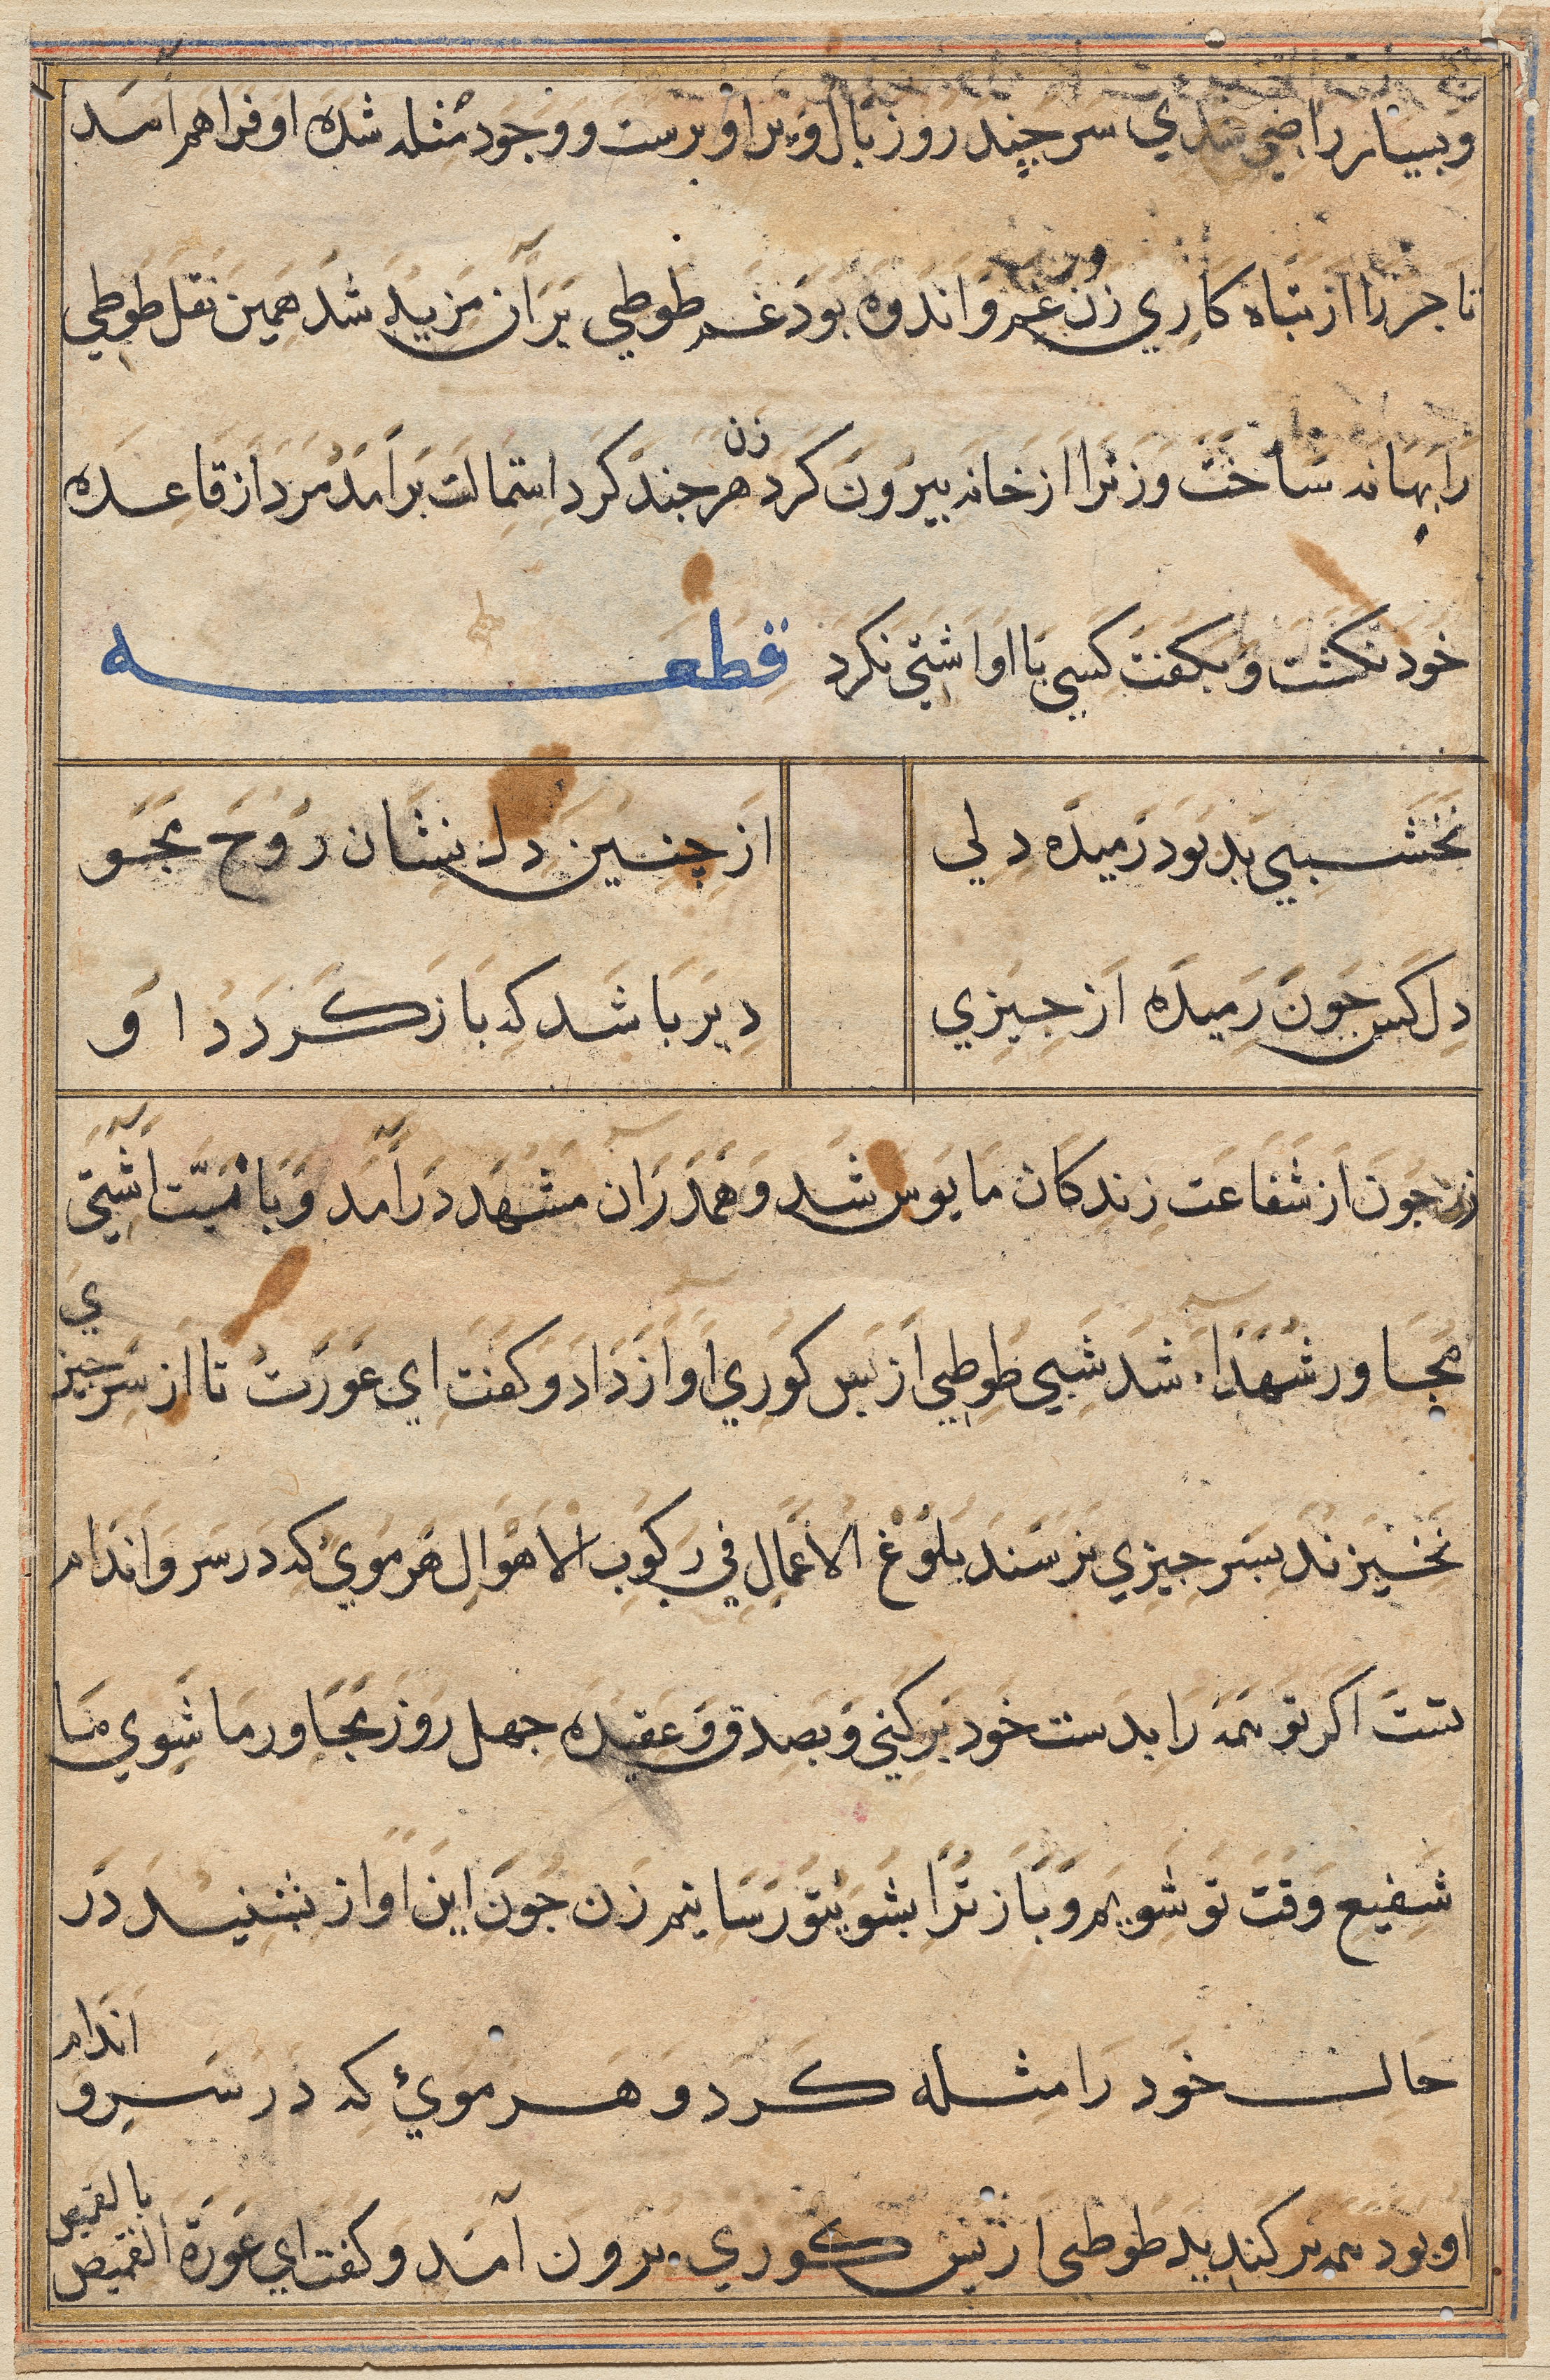 و بسیار راضی شدي سر چند روز بال و پر او برست و وجود مثله شده او فراهم آمد
تاجر را از تباه کاري زن غم و اندوه بود غم طوطي بران مزید شد همین نقل طوطي
را بهانه ساخت و زنرا از خانه بیرون کرد زن هر جند کرد استمالت برامد مرد از قاعده
خود نکشت و بکفت کسي با او اشتي نکرد قطعه
نخشبي بد بود رمیده دلي از چنین دل نشان روح مجو
دل کس جون رمیده از جیزي دیر باشد که باز کردد او
زن جون از شفاعت زندکان مایوس شد و همدران مشهد درآمد و با نیت اشتي
مجاور شهدا شد شبي طوطي از پس کوري اواز داد و کفت اي عورت تا از سر جیزي
نخیزند بسر جیزي نرسند بلوغ الاعمال في رکوب الاهوال هر موئي که در سر و اندام
تست اکر تو همه را بدست خود برکني و بصدق و عقیده جهل روز مجاور ما شوي ما
شفیع وقت تو شویم و باز ترا بشوي تو رسانیم زن جون این اواز شنید در
حال خود را مثله کرد و هر موئي که در سر و اندام
او بود همه برکندید طوطي از پس کوري برون آمد و کفت اي عورة القمیص بالقمیص